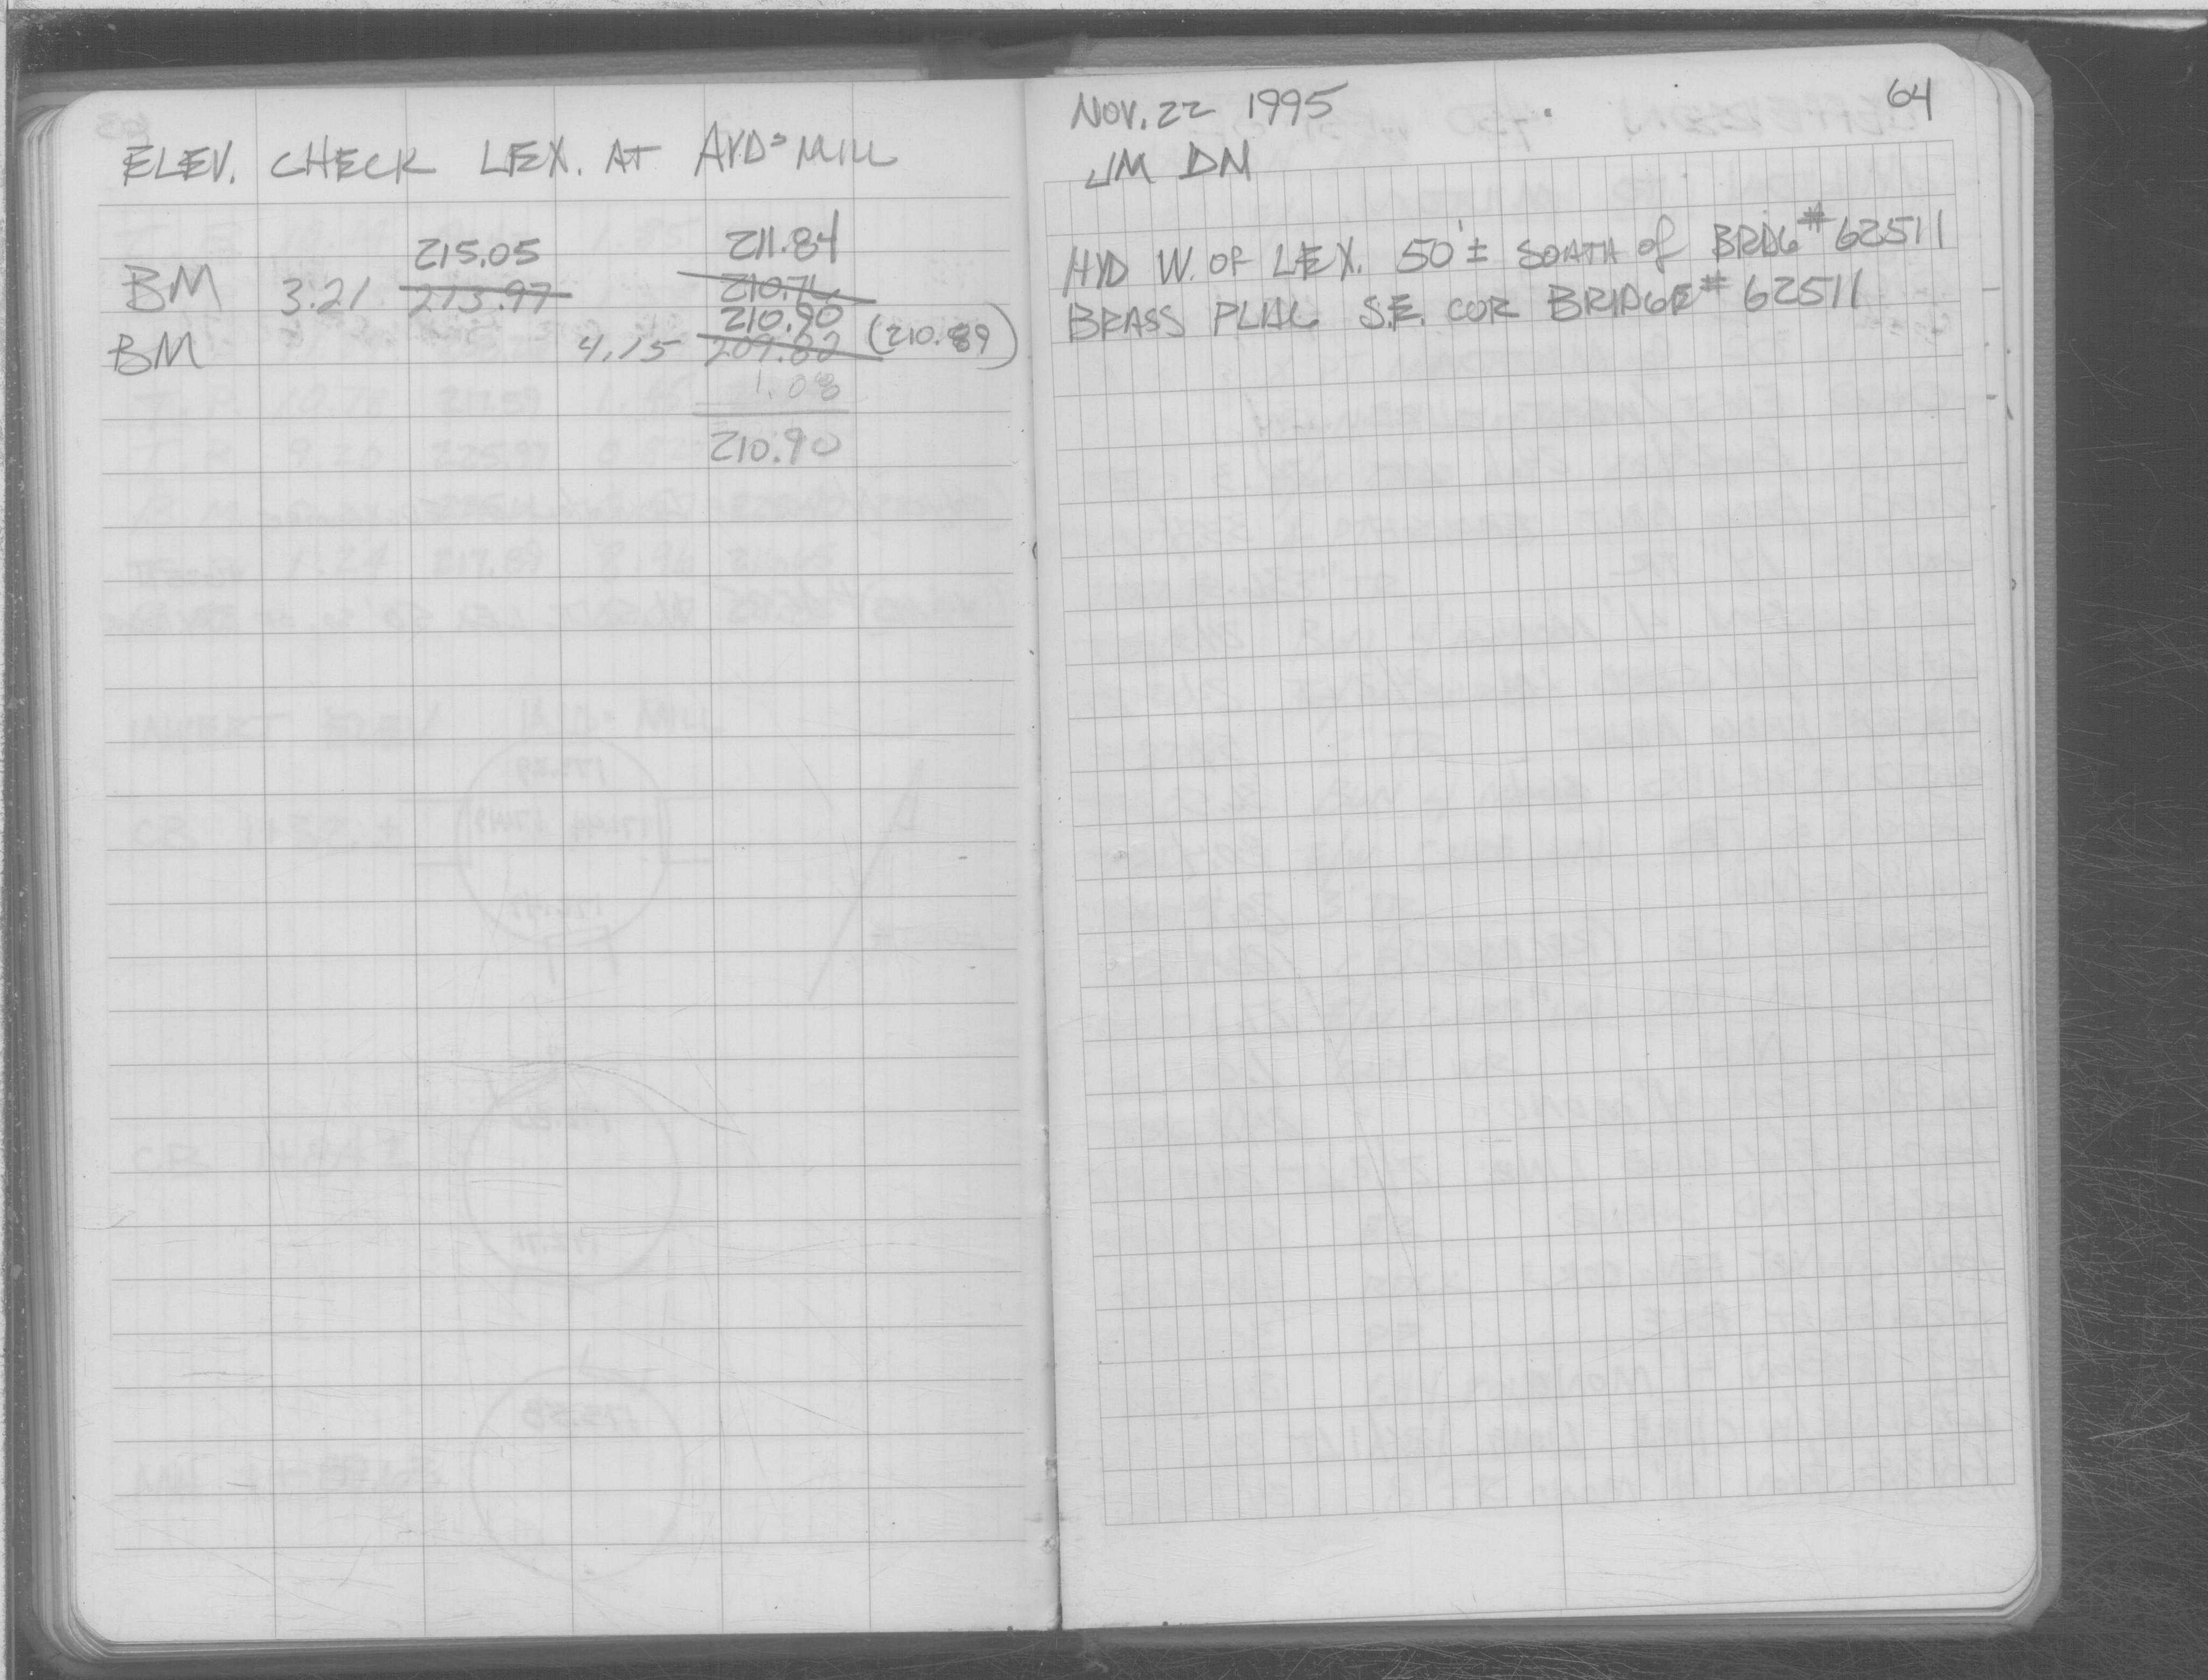 ELEV. CHECK LEX. AT AYD= MILL
215.05 211.84
BM 3.21 213.97 210.76
210.90
BM 4.15 209.82 (210.89)
1.08
210.90
NOV. 22 1995 64
JM DM
HYD W. OF LEX. 50'± SOUTH of BRDG #62511
BRASS PLUG S.E. COR BRIDGE #62511